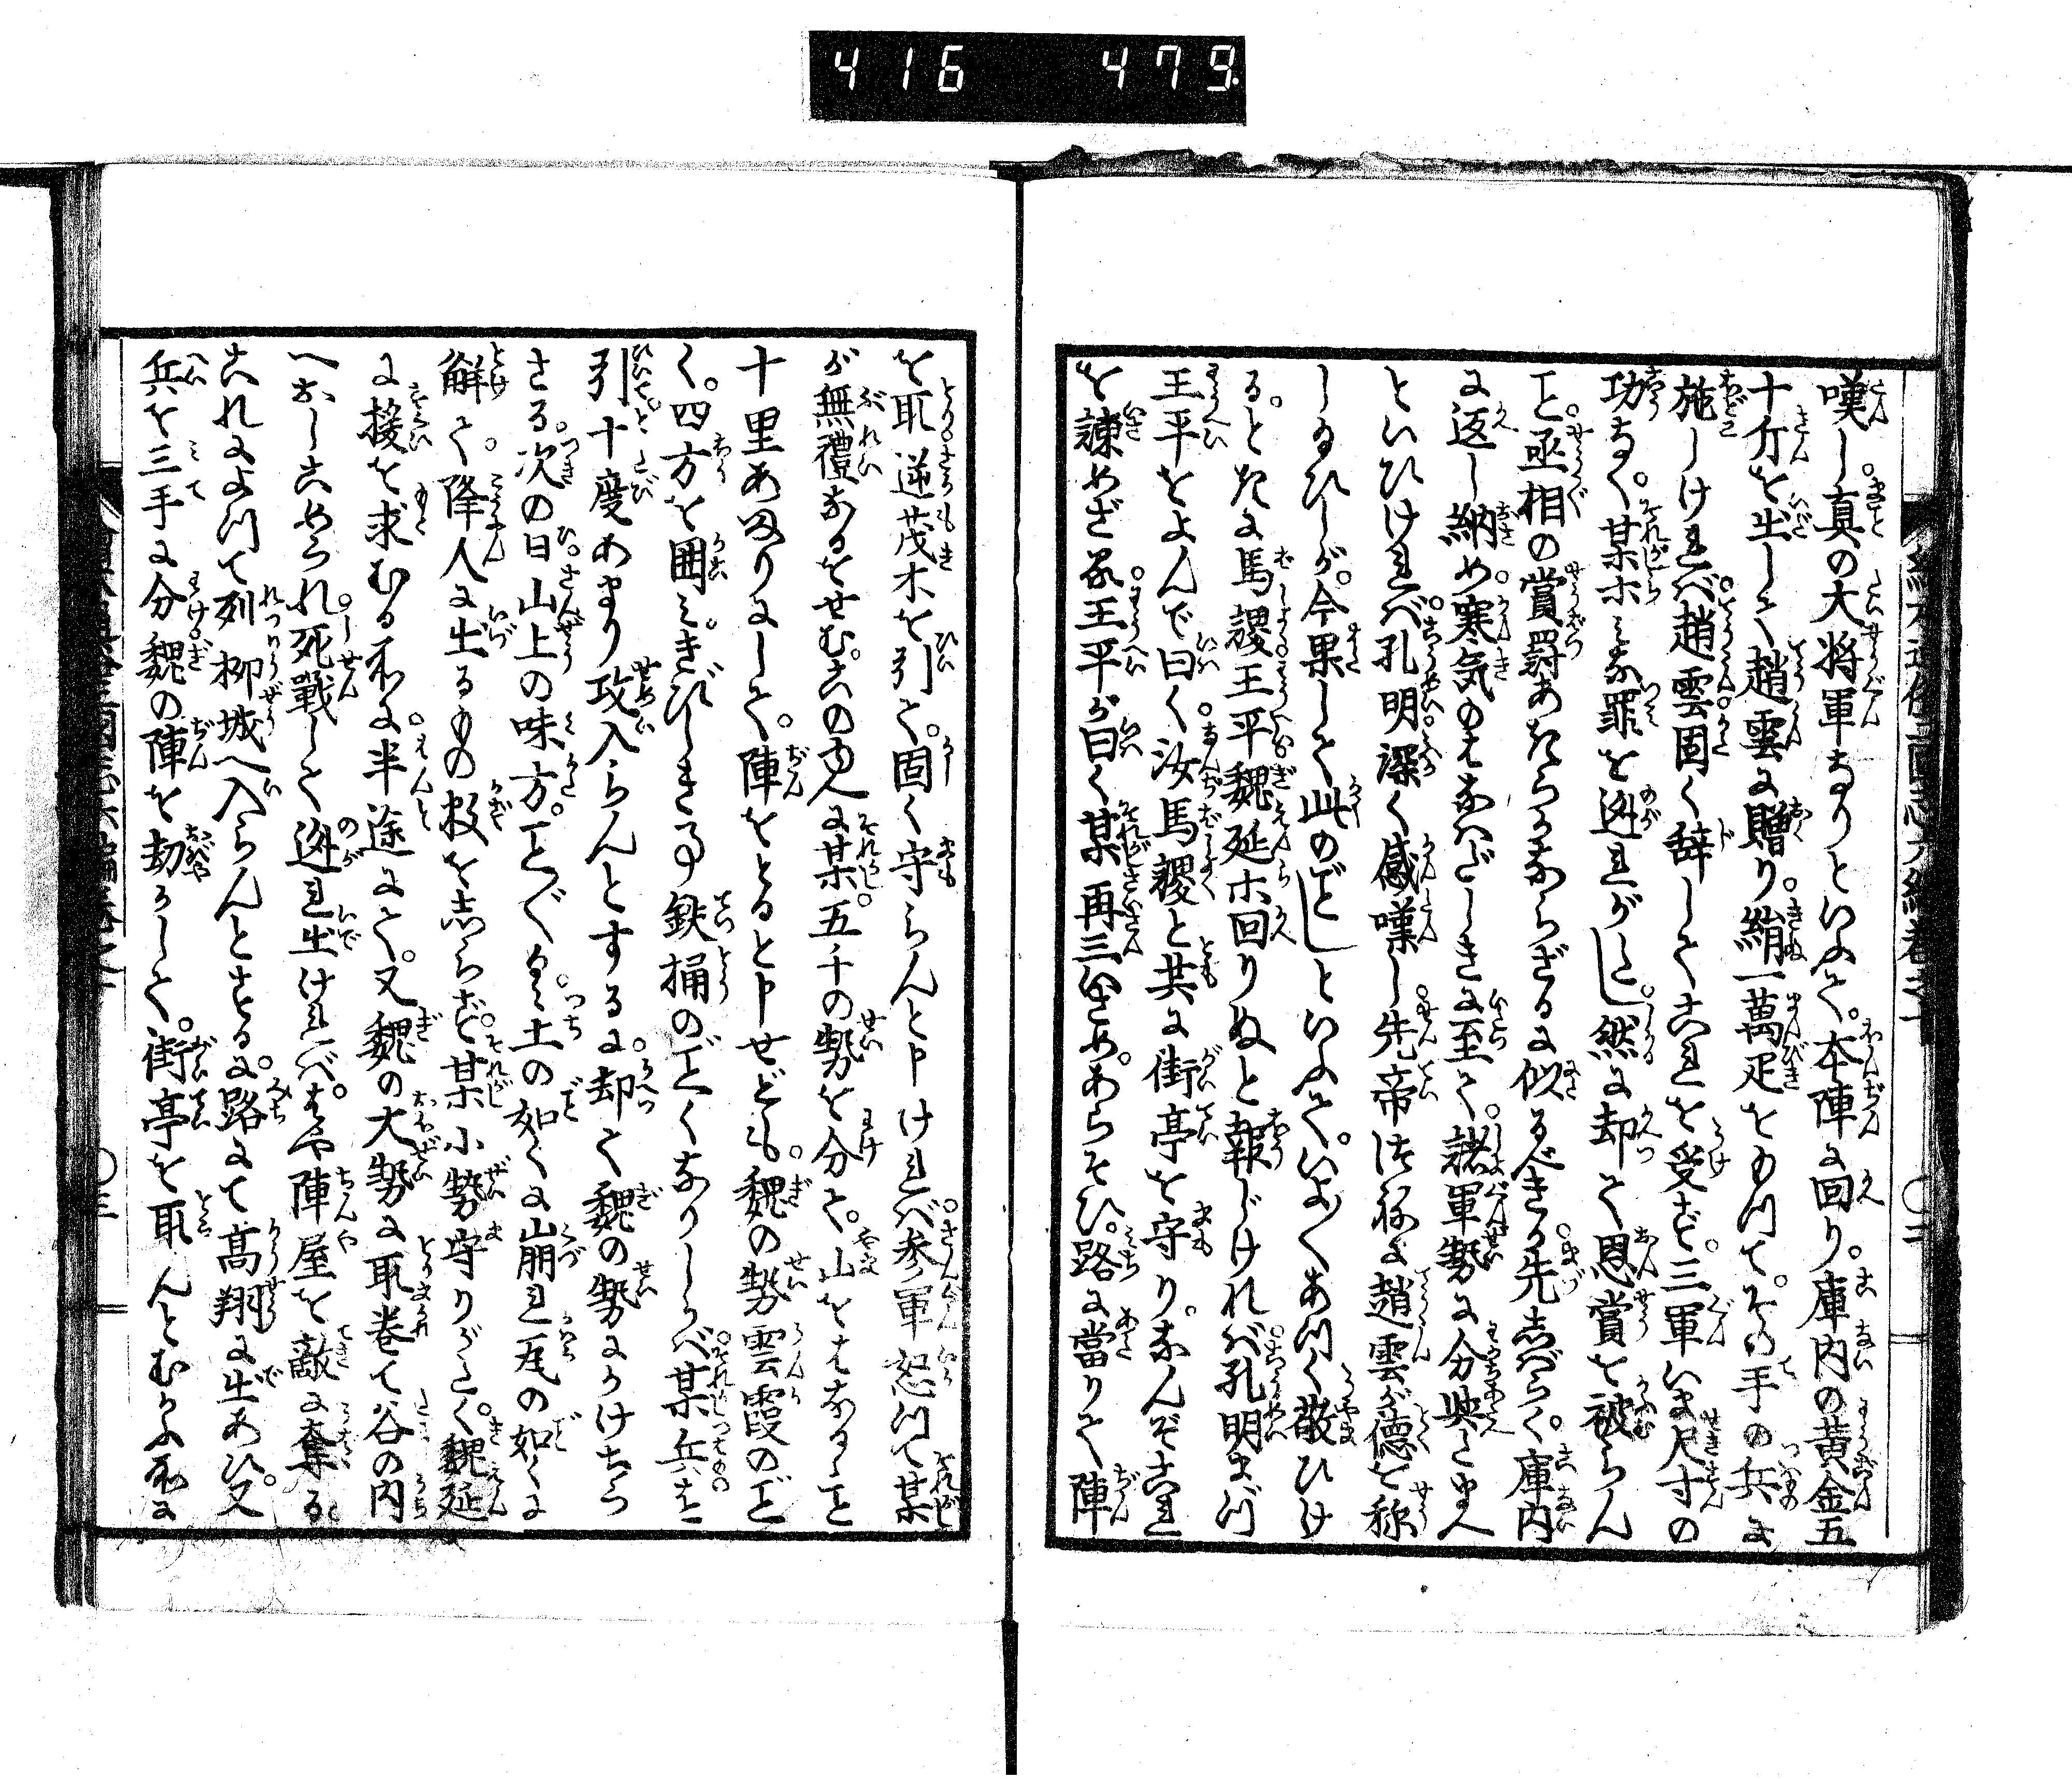 416 479
嘆し。真の大将軍なりといふて。本陣に回り。庫内の黄金五
十斤を出して趙雲に贈り。絹一萬疋をもつて。その手の兵に
施しければ。趙雲固く辞してこれを受ず。三軍いま尺寸の
功なく。某ホみな罪を遁れがたし。然に却て恩賞を被らん
こと。丞相の賞罰あきらかならざるに似るべきか。先しばらく。庫内
に返し納め。寒気のはなはだしきに至て。諸軍勢に分與たまへ
といひければ。孔明深く感嘆し。先帝つねに趙雲が徳を称
しるひしが。今果して此のごとしといふて。いよ〱あつく敬ひけ
る。ときに馬謖。王平。魏延ホ回りぬと報じければ。孔明まづ
王平をよんで曰く。汝馬謖と共に街亭を守り。なんぞこれ
を諫めざる。王平が曰く。某再三いさめ。あらそひ。路に當りて陣
を取。逆茂木を引て。固く守らんと申けれバ。参軍怒つて某
が無禮なるをせむ。このゆへに某。五千の勢を分て。山をはなるゝこと
十里あまりにして。陣をとると申せども。魏の勢雲霞のごと
く。四方を囲ミ。きびしき事鉄桶のごとくなりしかバ。某兵を
引て。十度あまり攻入らんとするに。却て魏の勢にかけちら
さる。次の日。山上の味方。こと〲く。土の如くに崩れ瓦の如くに
解て。降人に出るもの数を志らず。某小勢守りがたく。魏延
に援を求むる所に。半途にて。又魏の大勢に取巻て谷の内
へおしこめられ。死戰して遁れ出けれバ。はや陣屋を敵に奪る
これによつて列柳城へ入らんとせるに。路にて髙翔に出あひ。又
兵を三手に分。魏の陣を劫かして。街亭を取んとむかふ所に